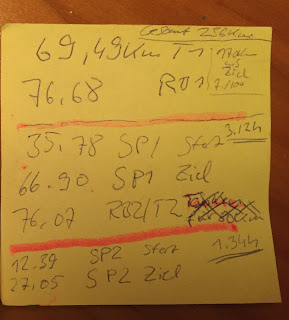 Gesamt 256km
69,49km T1
76.68 RO1
Ziel
35.78 SP1 Start 3.12h
66.90 SP1 Ziel
76.07 RO2/T2
12.39 SP2 Start 1.34h
27.05 SP2 Ziel